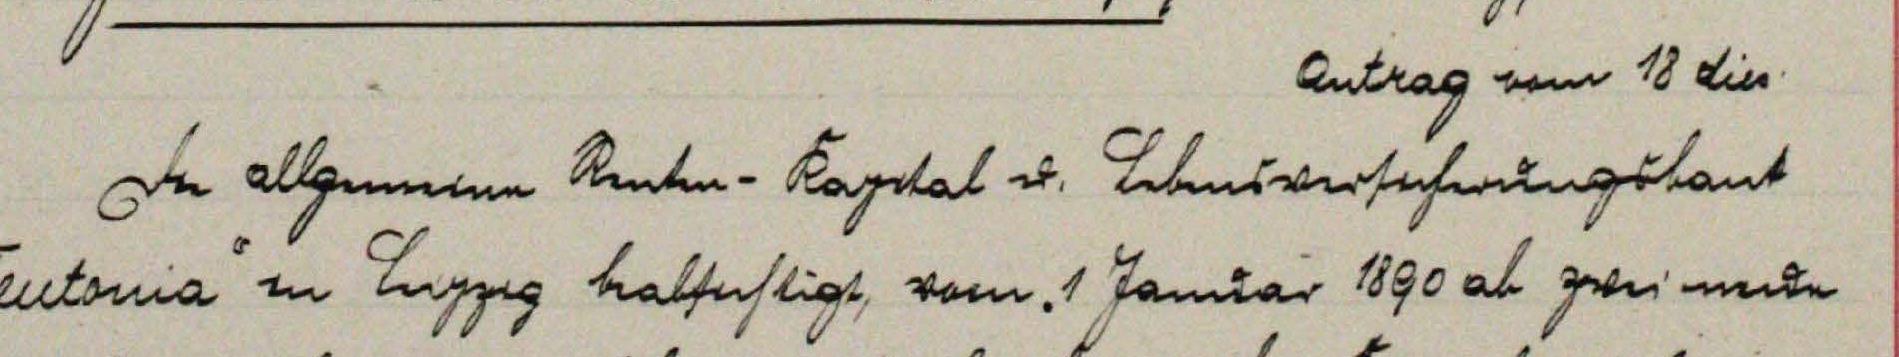 Antrag vom 18 dies.
Die allgemeine Renten- Kapital u. Lebensversicherungsbank
Teutonia" in Leipzig beabsichtigt, vom 1 Januar 1890 ab zwei neue